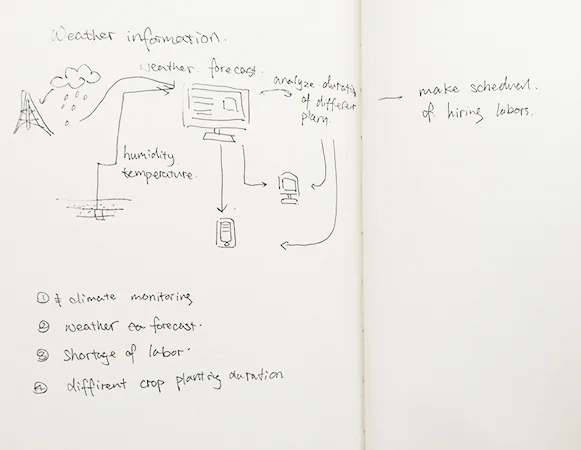 Weather information.
weather forecast.
analyze duration
of different
plany.
make schedual.
of hiring labors.
humidity
temperature.
① climate monitoring
② weather forecast.
③ shortage of labor.
④ diffirent crop planting duration